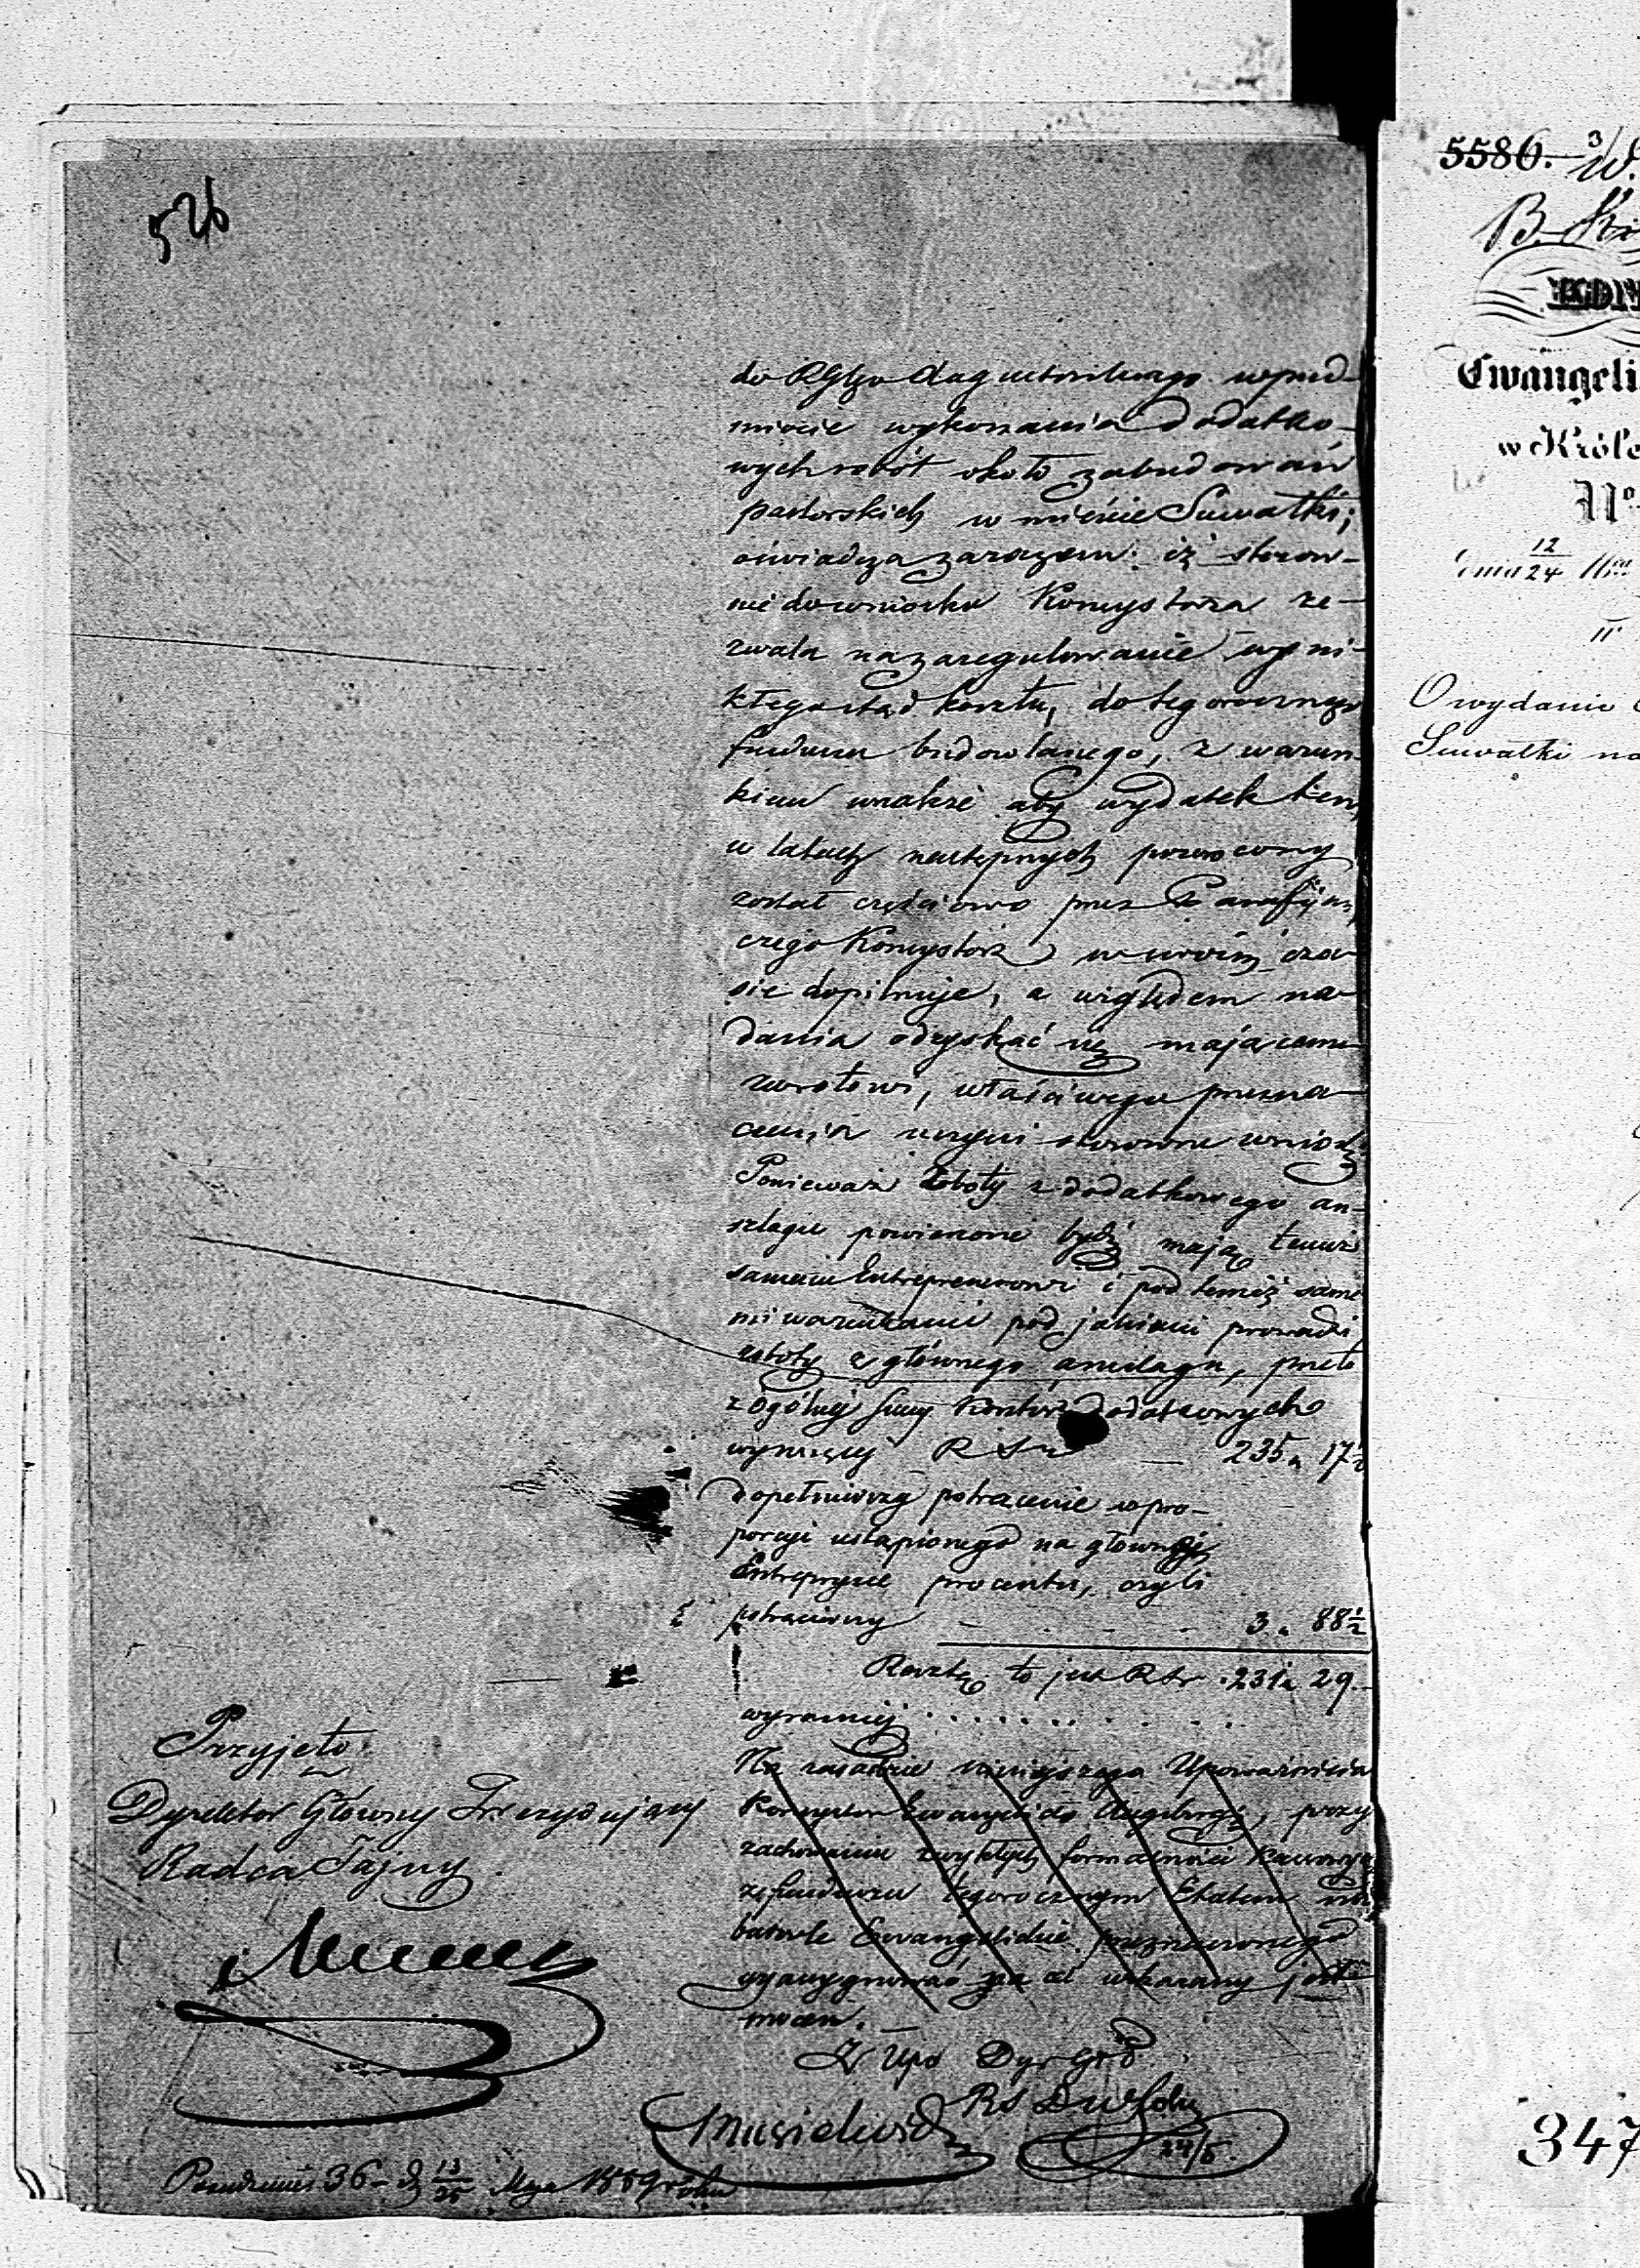 526
do RGtzo Augustowskiego w przed-
miocie wykonania dodatko-
wych robót około zabudowań
pastorskich w mieście Suwałki;
oświadcza zarazem: iż stosow-
nie do wniosku Konsystorza ze-
zwala na zaregulowanie wyni-
kłego stąd kosztu, do tegorocznego
funduszu budowlanego, z warun-
kiem wszakże aby wydatek ten,
w latach następnych powrócony
został częściowo przez Parafijan,
czego Konsystorz w swoim cza-
sie dopilnuje, a względem na-
dania odzyskać się mającemu
zwrotowi, właściwego przezna-
czenia uczyni stosowne wnioski
Ponieważ Roboty z dodatkowego an-
szlagu powierzone bydź mają temuż
samemu Entreprenerowi i pod temiż same-
mi warunkami pod jakiemi prowadzi
roboty z głównego anszlagu, przeto
z ogólnej sumy Kosztów dodatkowych
wynoszącej R Sr — 235 „ 17½
dopełniwszy potrącenie w pro-
porcji ustąpionego na głównej
Entrepryzie procentu, czyli
potrąciwszy - - - 3 „ 88½
Resztę to jest R Sr . 231 „ 29.
wyraźniej . . . . . . . . .
Na zasadzie niniejszego Upoważnienia
Konsystorz Ewangelicko Augsburgski, przy
zachowaniu zwykłych formalności Kassowych
z funduszu tegorocznym Etatem na
budowle Ewangelickie przeznaczonego
wyasygnować na cel wskazany jest
mocen.
Z Upo Dyr Gł
RS
Musielwicz
24/5.
Przyjęto
Dyrektor Główny Prezydujący
Radca Tajny
Posiedzenie 36 - d 13/25 Maja 1859 roku
5586. 3/W.
B.
Ewangeli
w Króle
No
dnia 12/24
O wydanie
Suwałki na
347